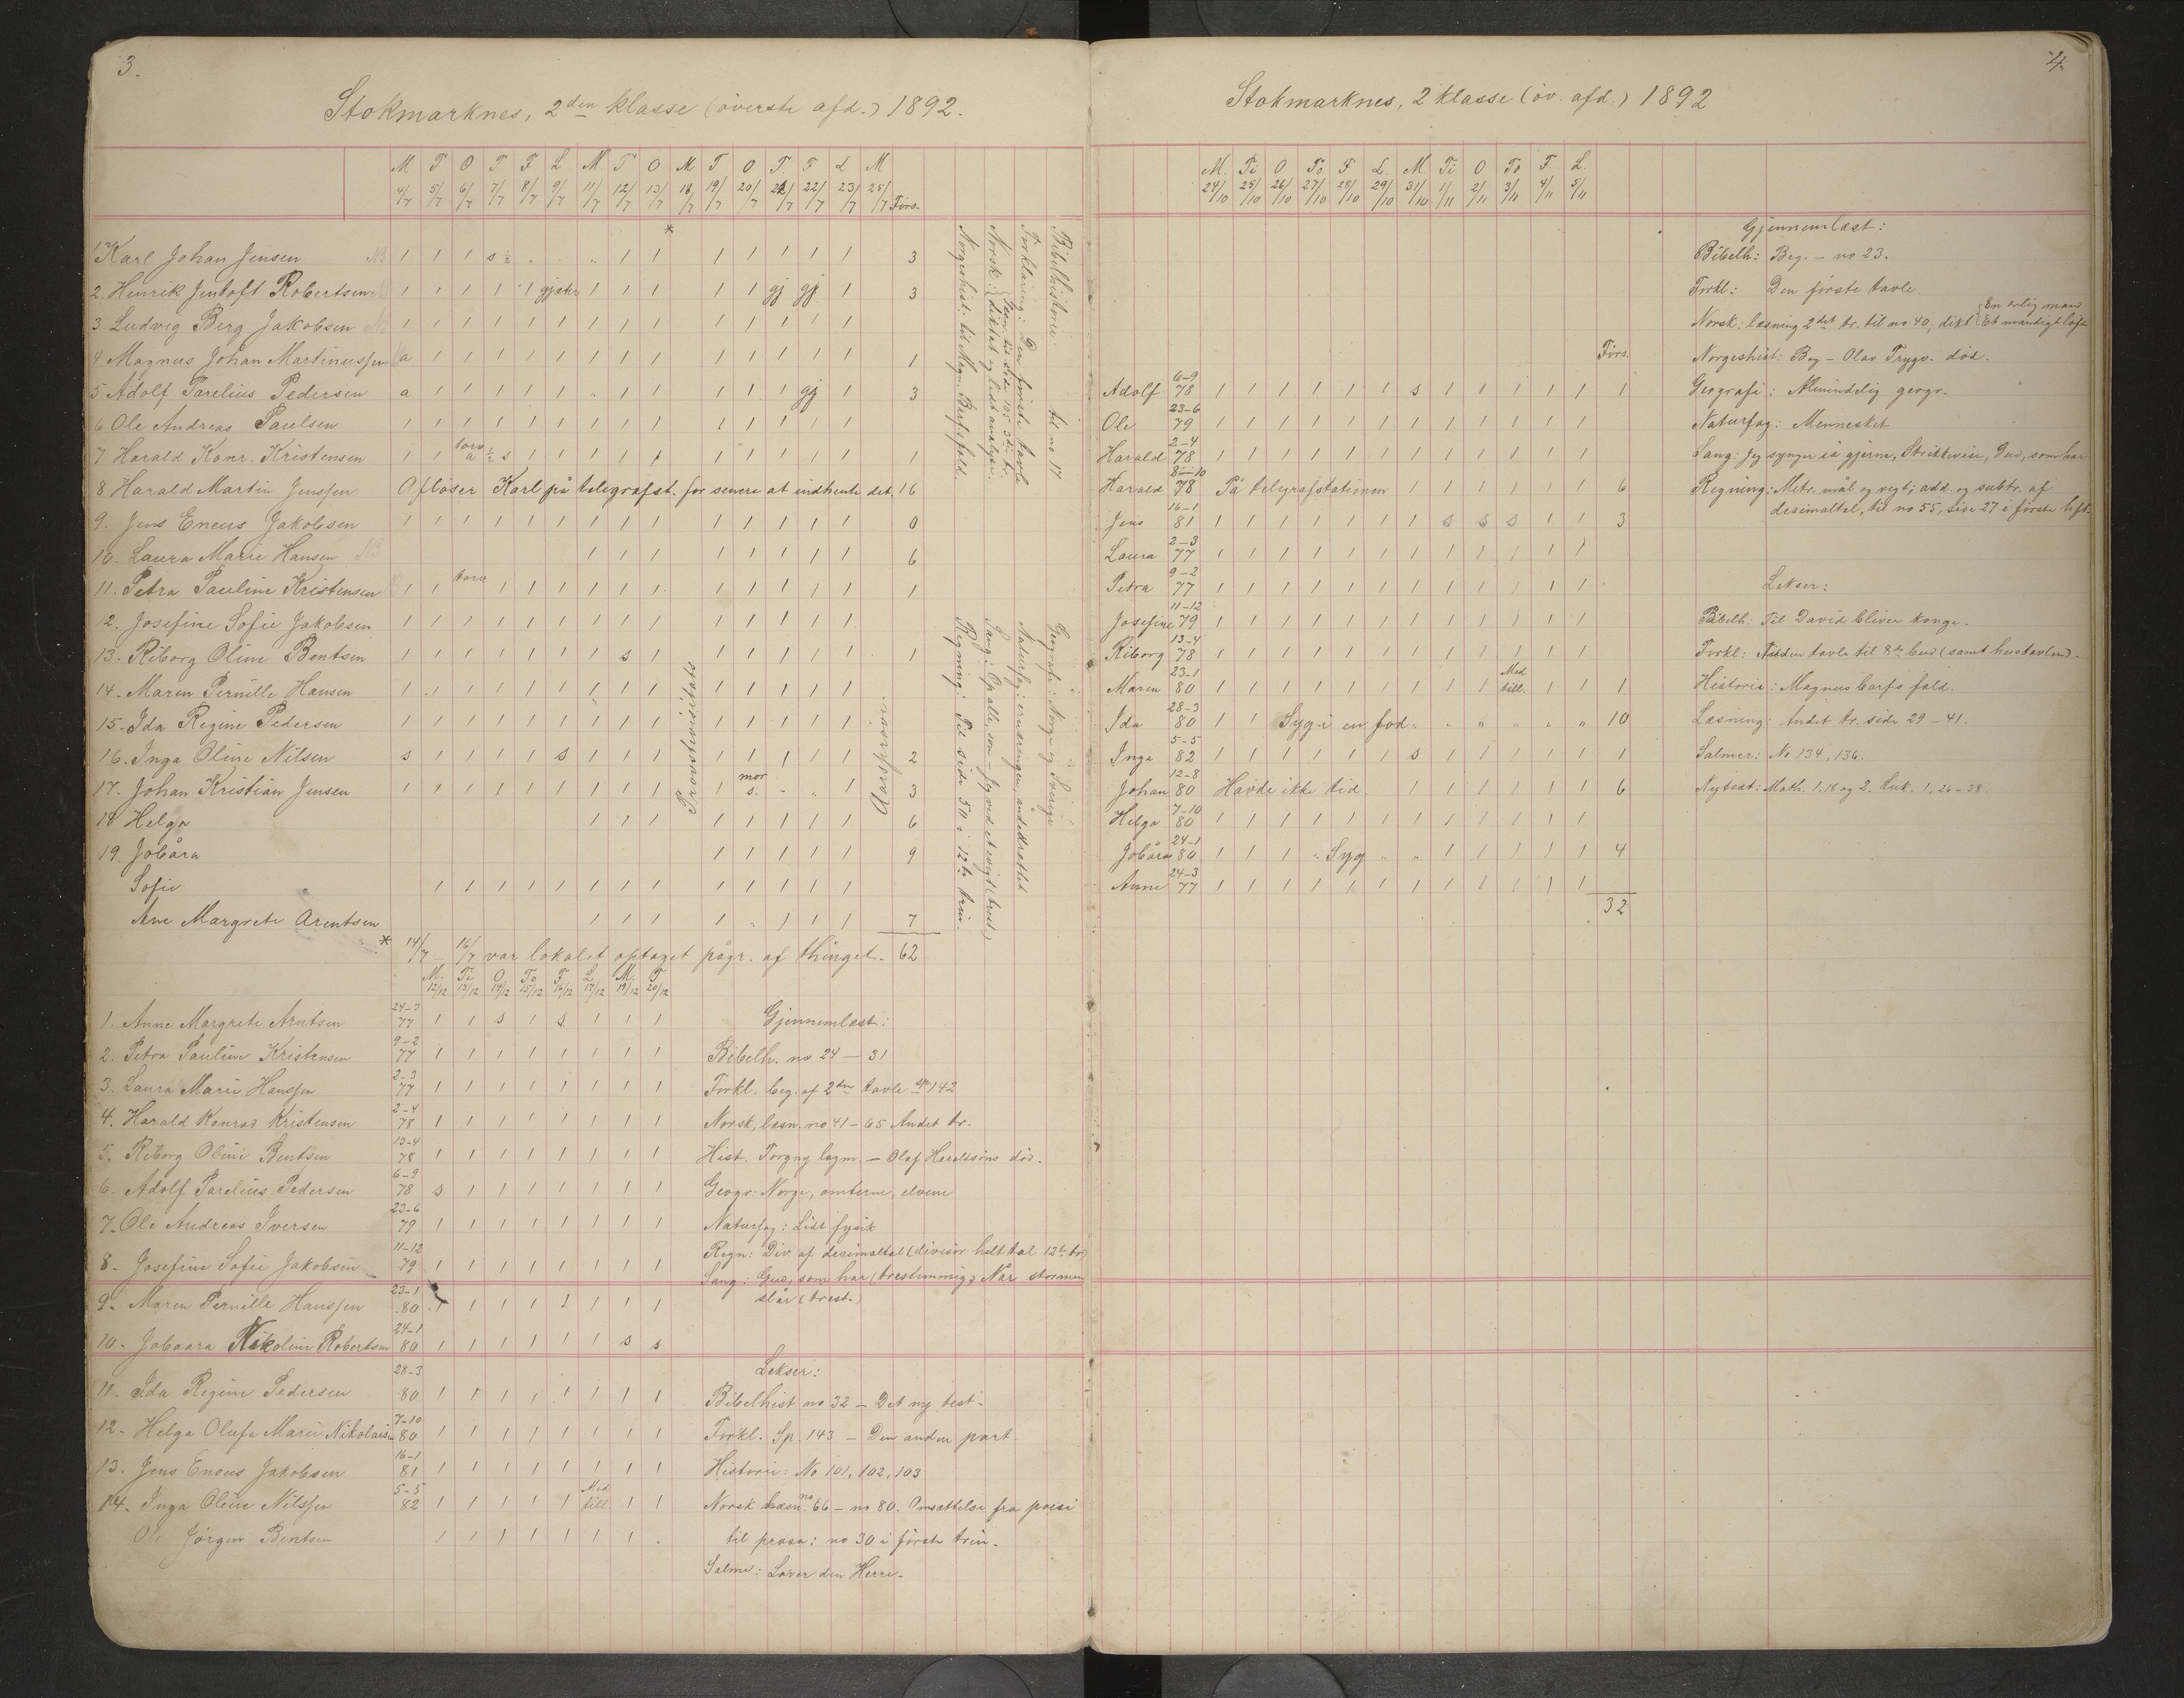 3.
Stokmarknes, 2den klasse (överste afd.) 1892.
M T O T F L M T O M T O T F L M
4/7 5/7 6/7 7/7 8/7 9/7 11/7 12/7 13/7 18/7 19/7 20/7 21/7 22/7 23/7 25/7 Förs.
*
1 Karl Johan Jensen NB 1 1 1 s ½ " " 1 1 1 1 1 1 1 3
2. Henrik Jentoft Robertsen 1 1 1 1 1 gjæter 1 1 1 1 1 gj gj 1 3
3. Ludvig Berg Jakobsen NB 1 1 1 1 1 1 1 1 1 1 1 1 1 1
4 Magnus Johan Martinussen a 1 1 1 1 1 1 1 1 1 1 1 1 1 1
5 Adolf Parelius Pedersen a 1 1 1 1 1 " 1 1 1 1 1 gj 1 3
6 Ole Andreas Paulsen 1 1 1 1 1 1 1 1 1 1 1 1 1 1
7 Harald Konr. Kristensen 1 1 torv a ½ s 1 1 1 1 1 1 1 1 1 1 1
8 Harald Martin Jenssen Aflöser Karl på telegrafst. for senere at indhente det. 16
9. Jens Eneus Jakobsen 1 1 1 1 1 1 1 1 1 1 1 1 1 1 0
10. Laura Marie Hansen NB 1 1 1 1 1 1 1 1 6
11. Petra Pauline Kristensen 1 1 torv 1 1 1 1 1 1 1 1 1 1 1 1
12. Josefine Sofie Jakobsen 1 1 1 1 1 1 1 1 1 1 1 1 1 1
13. Riborg Oline Bentsen 1 1 1 1 1 1 1 s 1 1 1 1 1 1 1
14. Maren Pernille Hansen 1 1 1 1 1 1 1 1 1 1 1 1 1 1
15. Ida Regine Pedersen 1 1 1 1 1 1 1 1 1 1 1 1 1 1
16. Inga Oline Nilsen s 1 1 1 1 s 1 1 1 1 1 1 1 1 2
17. Johan Kristian Jensen 1 1 1 1 1 1 1 1 1 1 mor s. " " 1 3
18 Helga 1 1 1 1 1 1 1 1 6
19. Jobåra 1 1 1 1 1 9
Sofie 1 1 1 1 1 1 1 1 1 1 1 1 1
Ane Margrete Arentsen 1 1 1 1 " 1 1 1 7
* 14/7 – 16/7 var lokalet optaget pågr. af thinget. 62
Bibelhistorie: til no 17
Forklaring: Den förste tavle
Norsk: diktat og lidt analyse.
læsn. til side 105 3die tr.
Norgeshist: til Magn. Barfs fald.
Geografi: Norge og Sverige
Naturfag: ernæringen, åndedrættet
Regning: Til side 50 i 12te trin.
M. Ti O To F L M. T
12/12 13/12 14/12 15/12 16/12 17/12 19/12 20/12
1. Anne Margrete Arntsen 24-3 77 1 1 s 1 s 1 1 1
2. Petra Pauline Kristensen 9-2 77 1 1 1 1 1 1 1 1
3. Laura Marie Hanssen 2-3 77 1 1 1 1 1 1 1 1
4. Harald Konrad Kristensen 2-4 78 1 1 1 1 1 1 1 1
5. Riborg Oline Bentsen 13-4 78 1 1 1 1 1 1 1 1
6. Adolf Parelius Pedersen 6-9 78 s 1 1 1 1 1 1 1
7. Ole Andreas Iversen 23-6 79 1 1 1 1 1 1 1 1
8. Josefine Sofie Jakobsen 11-12 79 1 1 1 1 1 1 1 1
9. Maren Pernille Hanssen 23-1 80 1 1 1 1 1 1 1 1
10. Jobaara Nikoline Robertsen 24-1 80 1 1 1 1 1 1 s s
11. Ida Regine Pedersen 28-3 80 1 1 1 1 1 1 1 1
12. Helga Olufa Marie Nikolaisen 7-10 80 1 1 1 1 1 1 1 1
13. Jens Eneus Jakobsen 16-1 81 1 1 1 1 1 1 1 1
14. Inga Oline Nilssen 5-5 82 1 1 1 1 1 Med till. 1 1
Ole Jörgen Bentsen 1 1 1 1 1 1 1 .
Gjennemlæst:
Bibelh. no 24 — 31
Forkl. beg. af 2den tavle – sp. 142
Norsk, læsn. no 41 – 65 Andet tr.
Hist. Torgny lagm. — Olaf Haraldsöns död.
Geogr: Norge, amterne, elvene
Naturfag: Lidt fysik
Regn: Div. af desimaltal (divisor helt tal 12te tr)
Sang: Gud, som har (trestemmig) Når stormen
slår (trest.)
Lekser:
Bibelhist no 32 – Det ny test.
Forkl. Sp. 143 – Den anden part.
Historie: No 101, 102, 103
Norsk læsn. no 66 – no 80. Omsættelse fra poesi
til prosa: no 30 i förste trin.
Salme: Lover den Herre.
4
Stokmarknes, 2 klasse (öv. afd.) 1892
M. Ti O To F L. M. Ti O To F. L.
24/10 25/10 26/10 27/10 28/10 29/10 31/10 1/11 2/11 3/11 4/11 5/11
Förs.
Adolf 6-9 78 1 1 1 1 1 1 s 1 1 1 1 1 1
Ole 23-6 79 1 1 1 1 1 1 1 1 1 1 1 1
Harald 2-4 78 1 1 1 1 1 1 1 1 1 1 1 1
Harald 8-10 78 På telegrafstationen 1 1 1 1 1 1 6
Jens 16-1 81 1 1 1 1 1 1 1 s s s 1 1 3
Laura 2-3 77 1 1 1 1 1 1 1 1 1 1 1 1
Petra 9-2 77 1 1 1 1 1 1 1 1 1 1 1 1
Josefine 11-12 79 1 1 1 1 1 1 1 1 1 1 1 1
Riborg 13-4 78 1 1 1 1 1 1 1 1 1 1 1 1
Maren 23-1 80 1 1 1 1 1 1 1 1 1 Med till. 1 1 1
Ida 28-3 80 1 1 Syg i en fod " " " " " " 10
Inga 5-5 82 1 1 1 1 1 1 s 1 1 1 1 1 1
Johan 12-8 80 Havde ikke tid 1 1 1 1 1 1 6
Helga 7-10 80 1 1 1 1 1 1 1 1 1 1 1 1
Jobåra 24-1 80 1 1 1 " Syg " " 1 1 1 1 1 4
Anne 24-3 77 1 1 1 1 1 1 1 1 1 1 1 1
32
Gjennemlæst:
Bibelh: Beg. – no 23.
Forkl: Den förste tavle.
Norsk: læsning 2det tr. til no 40, dikt. En ærlig mand
Et mandigt löfte
Norgeshist: Beg – Olav Trygv. död.
Geografi: Almindelig geogr.
Naturfag: Mennesket
Sang: Jeg synger så gjerne, Strikkevise, Gud, som har
Regning: Metr. mål og vegt; add. og subtr. af
desimaltal, til no 55, side 27 i förste hft.
Lekser:
Bibelh: Til David bliver konge.
Forkl: Anden tavle til 8de bud (samt hustavlen).
Historie: Magnus Barfs fald.
Læsning: Andet tr. side 29 – 41.
Salmer: No 134, 136.
Nytest: Math. 1.18 og 2. Luk. 1, 26 – 38.